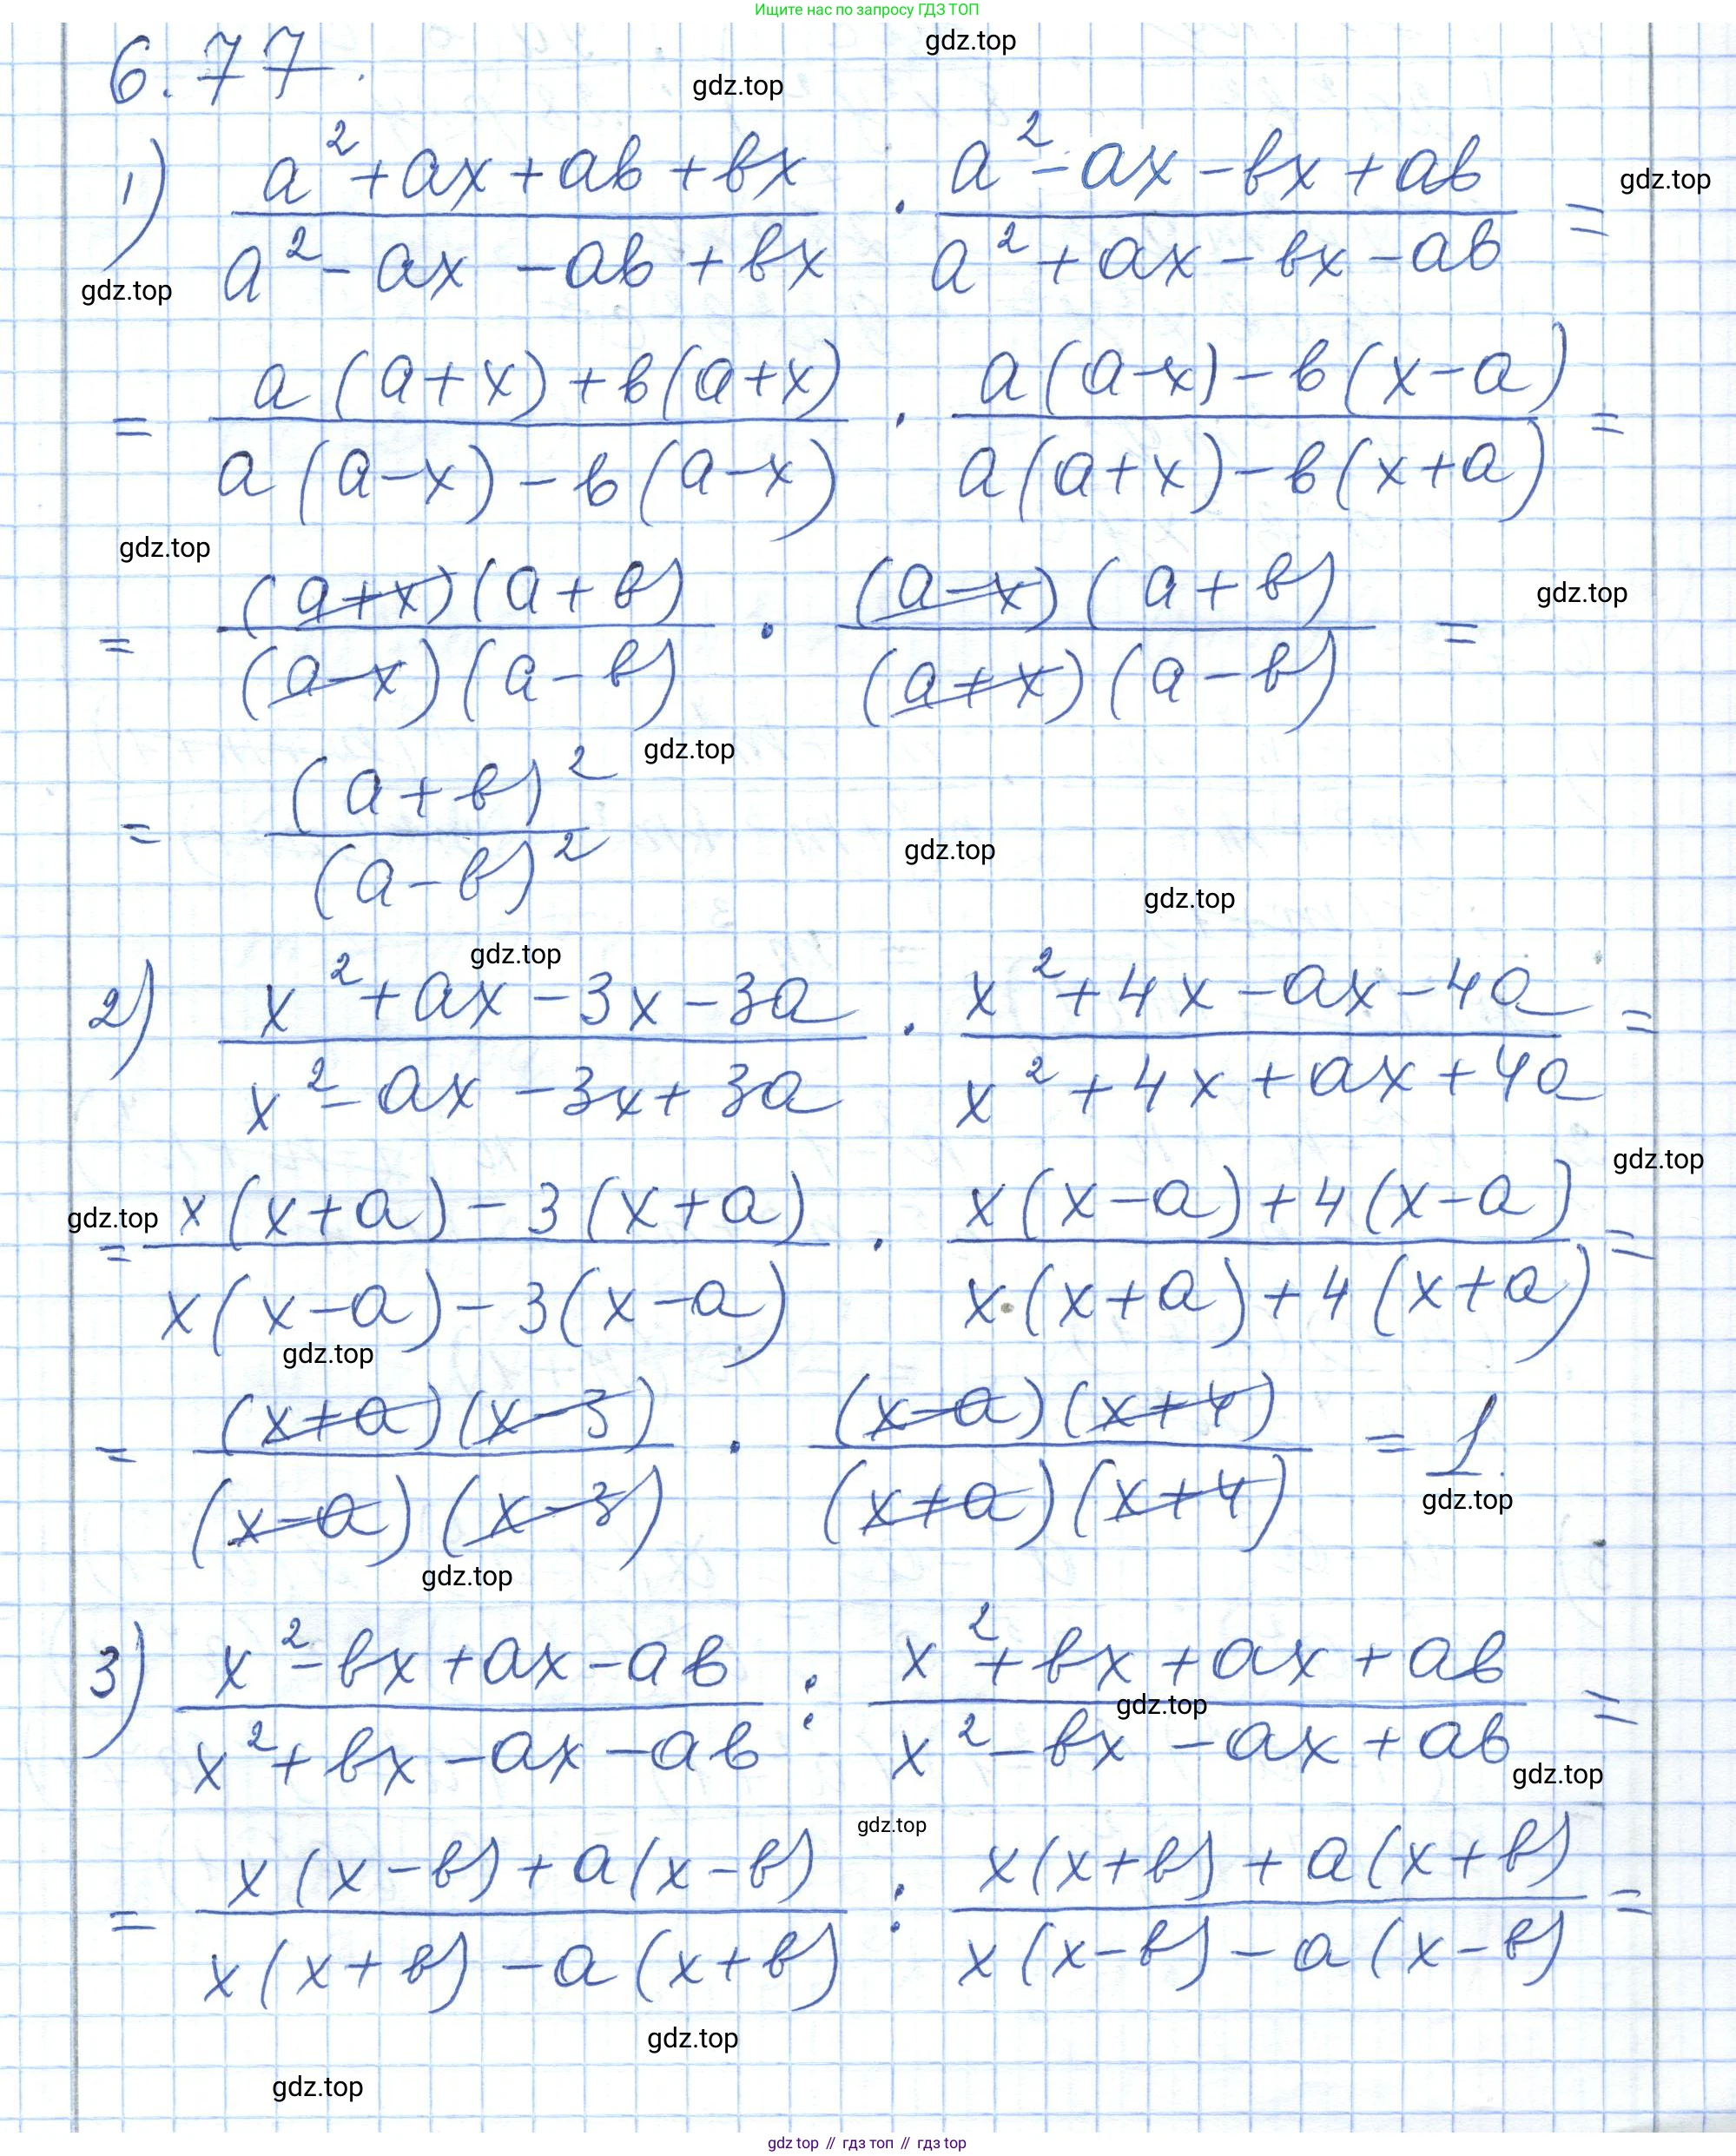 Ищите нас по запросу ГДЗ ТОП
gdz.top
6.77.
gdz.top
1) (a² + ax + ab + bx)/(a² - ax - ab + bx) · (a² - ax - bx + ab)/(a² + ax - bx - ab) =
gdz.top
gdz.top
= (a(a+x) + b(a+x))/(a(a-x) - b(a-x)) · (a(a-x) - b(x-a))/(a(a+x) - b(x+a)) =
gdz.top
= ((a+x)(a+b))/((a-x)(a-b)) · ((a-x)(a+b))/((a+x)(a-b)) =
gdz.top
gdz.top
= (a+b)²/(a-b)²
gdz.top
gdz.top
gdz.top
2) (x² + ax - 3x - 3a)/(x² - ax - 3x + 3a) · (x² + 4x - ax - 4a)/(x² + 4x + ax + 4a) =
gdz.top
gdz.top
= (x(x+a) - 3(x+a))/(x(x-a) - 3(x-a)) · (x(x-a) + 4(x-a))/(x·(x+a) + 4(x+a)) =
gdz.top
= ((x+a)(x-3))/((x-a)(x-3)) · ((x-a)(x+4))/((x+a)(x+4)) = 1.
gdz.top
gdz.top
3) (x² - bx + ax - ab)/(x² + bx - ax - ab) : (x² + bx + ax + ab)/(x² - bx - ax + ab) =
gdz.top
gdz.top
gdz.top
= (x(x-b) + a(x-b))/(x(x+b) - a(x+b)) : (x(x+b) + a(x+b))/(x(x-b) - a(x-b)) =
gdz.top
gdz.top
gdz top // гдз топ // гдз top